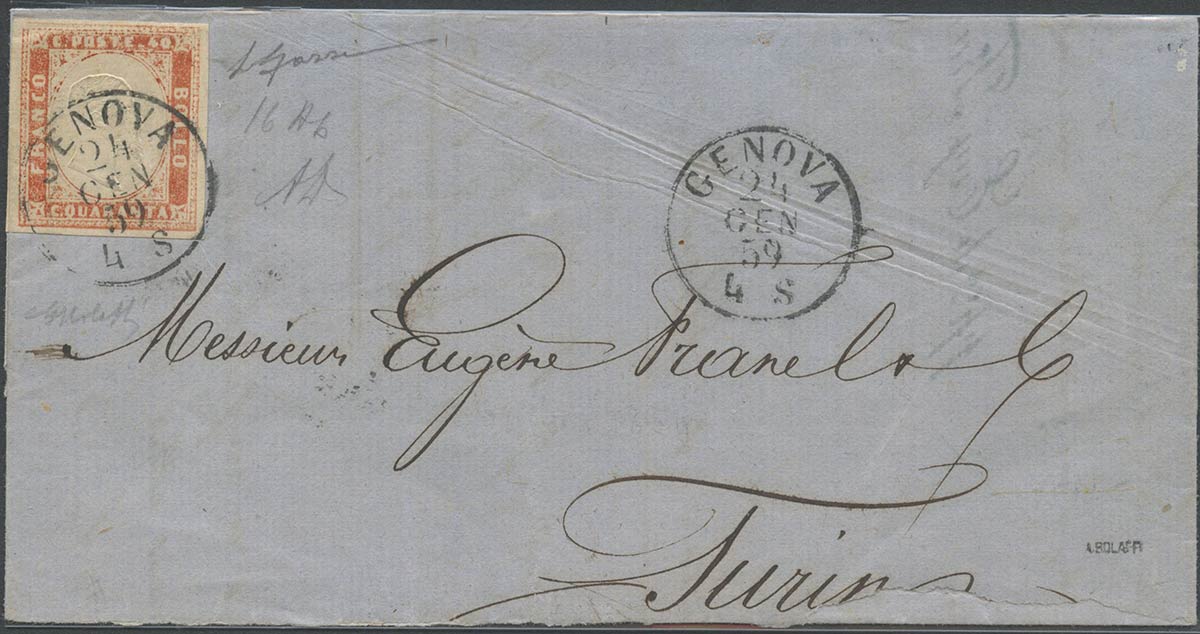 C. POSTE 40
FRANCO
BOLLO
C. QUARANTA
GENOVA
24
GEN
59
4 S
16 Ab
AD
GENOVA
24
GEN
59
4 S
Messieurs Eugène Franel & C
Turin
A. BOLAFFI